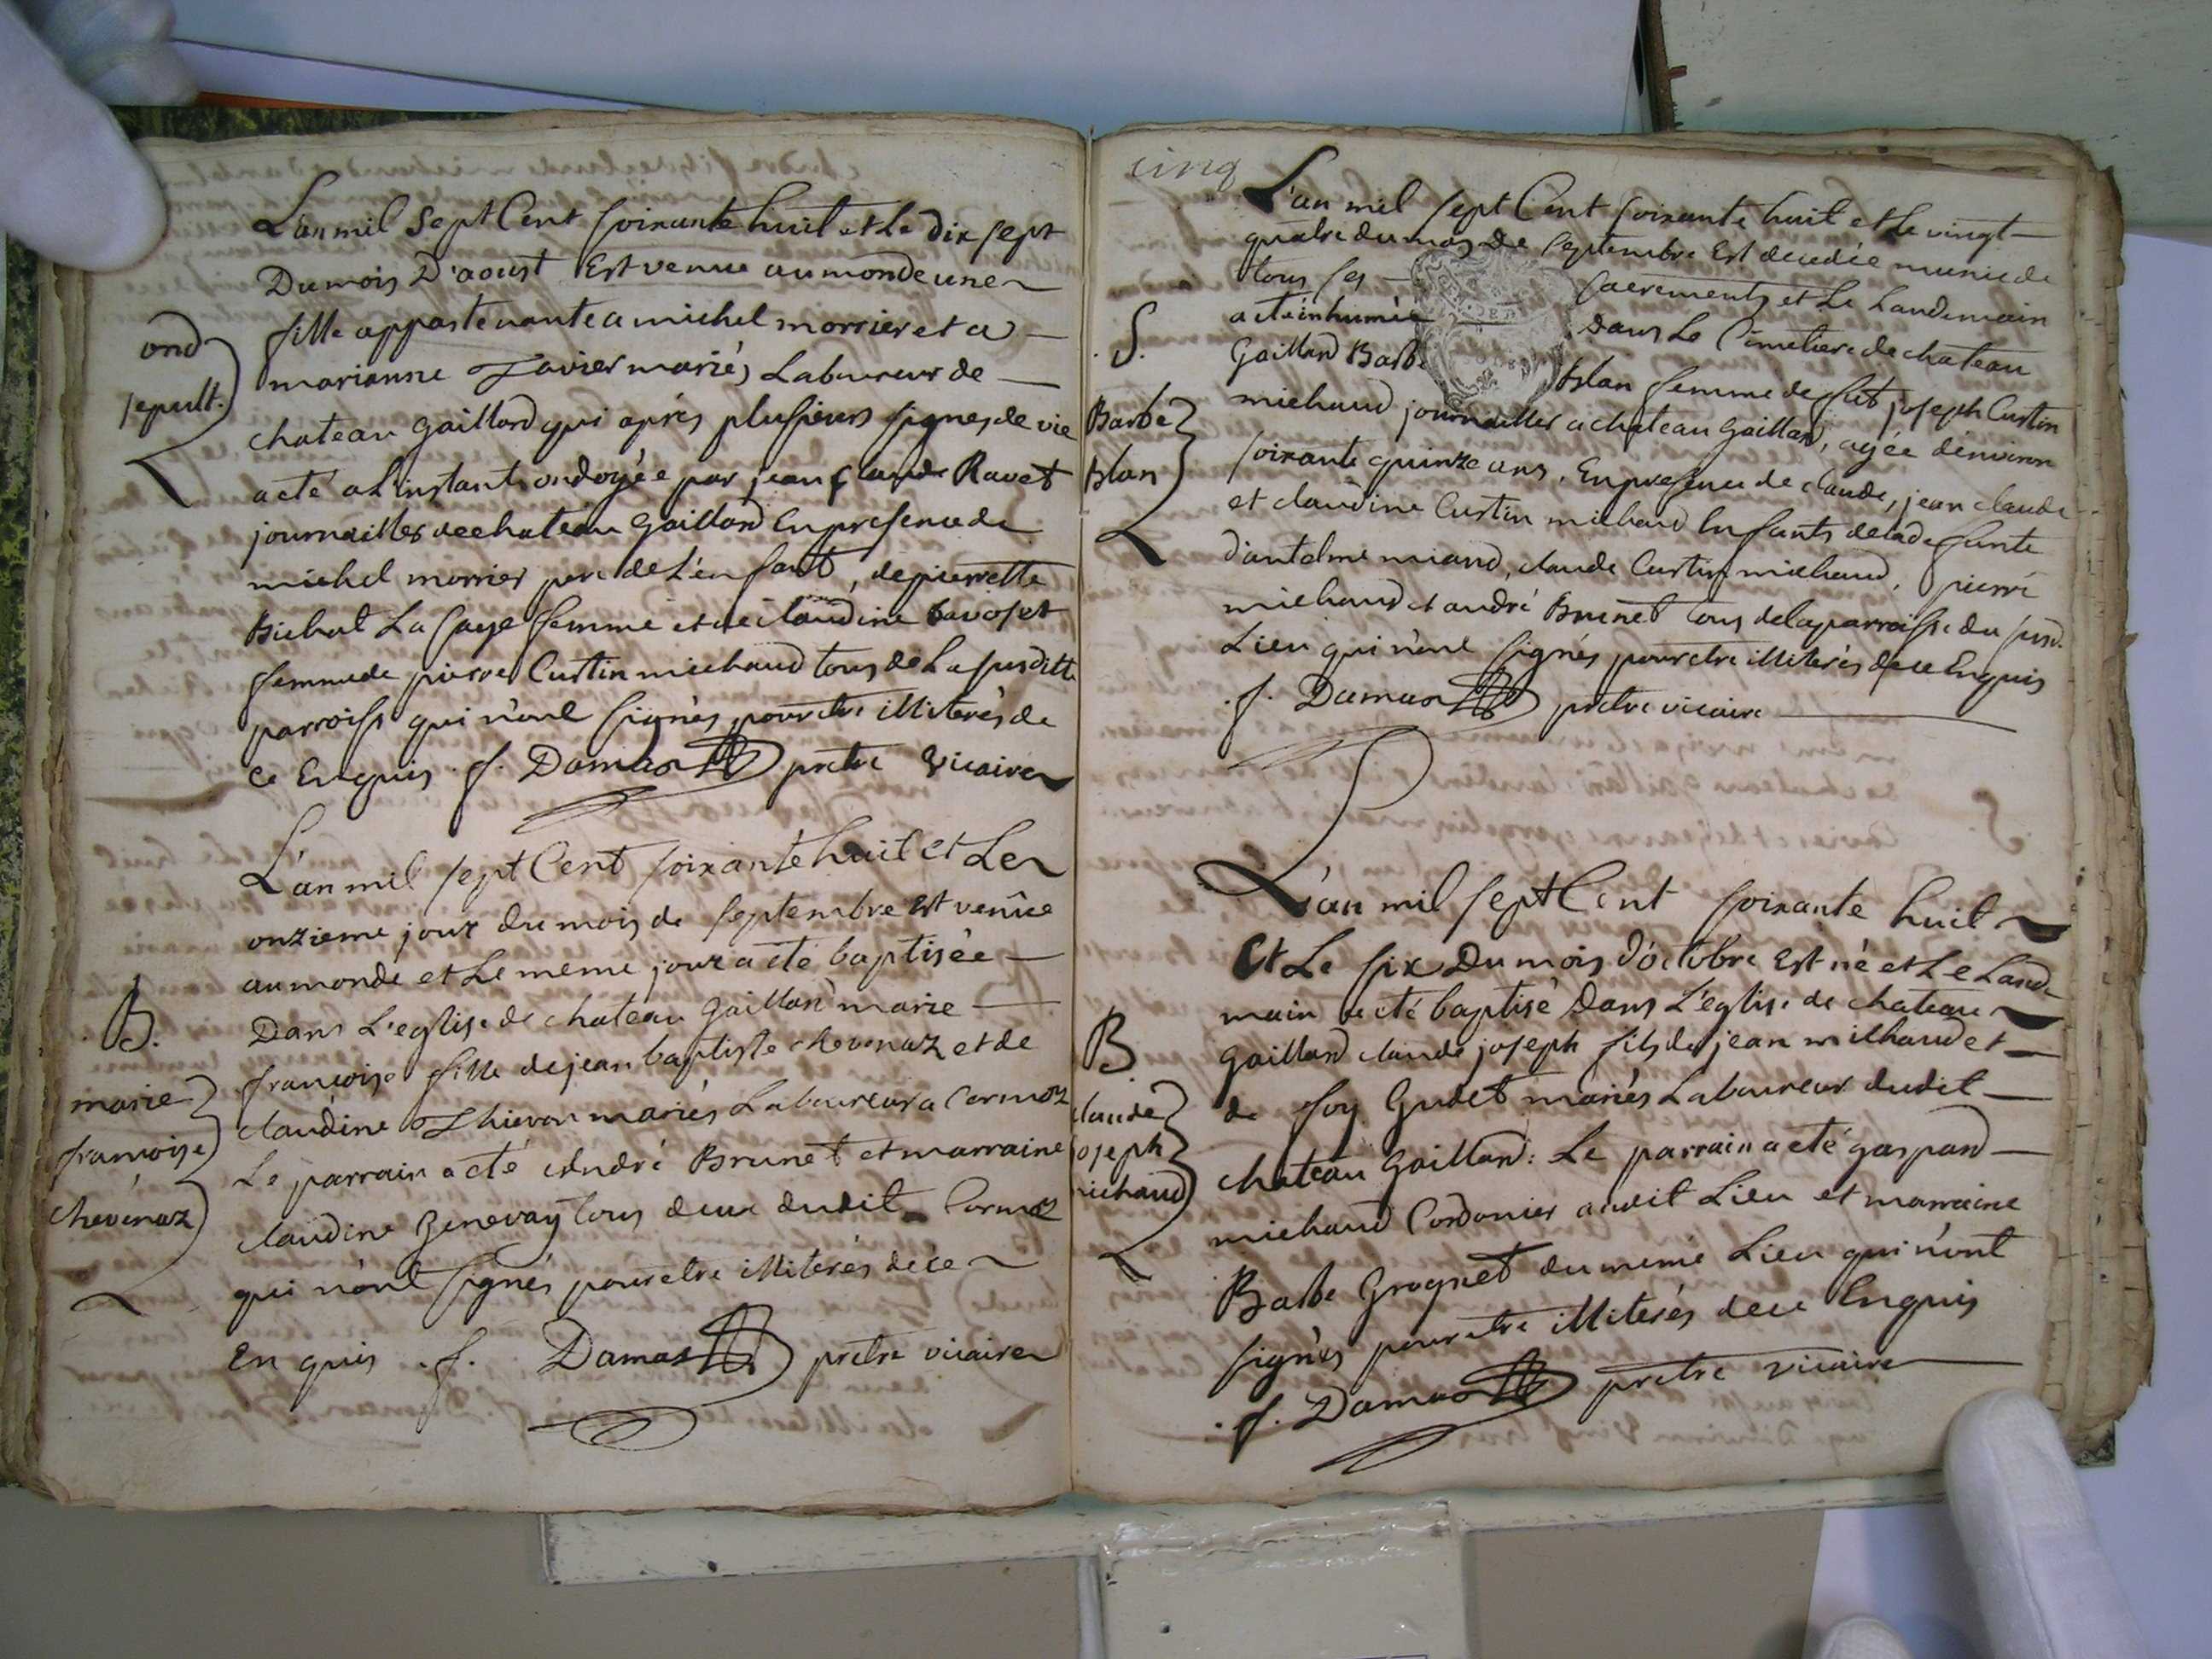 L'an mil sept Cent soixante huit et Le dix sept
Du mois D'aoust Est venue au monde une
fille appartenante a michel morrier et a
ond
marianne Tavier mariés Laboureur de
sepult.
chateau gaillard qui après plusieurs signes de vie
a eté a L'instant ondoyée par jean claude Ravet
journailler de chateau gaillard En presence de
michel morrier pere de L'enfant, de pierrette
Bichat La sage femme et de claudine bavoset
femme de pierre Curtin michaud tous de La susditte
parroisse qui n'ont signés pour etre illiterés de
ce Enquis f. Damas pretre vicaire
L'an mil sept Cent soixante huit et Le
onzieme jour du mois de septembre Est venüe
au monde et Le meme jour a eté baptisée
Dans L'eglise de chateau gaillard marie
B.
françoise fille de jean baptiste chevenaz et de
marie
claudine Thievon mariés Laboureur a Cormoz
françoise
Le parrain a eté andré Brunet et marraine
chevenaz
claudine Genevay tous deux dudit Cormoz
qui n'ont signés pour etre illiterés de ce
Enquis f. Damas pretre vicaire
cinq
L'an mil sept Cent soixante huit et le vingt
quatre du mois De septembre Est decedée munie de
tous ses sacrements et Le Landemain
a eté inhumée dans Le Cimetiere de chateau
S.
Gaillard Barbe blan femme de fut joseph Curtin
Barbe
michaud journailler a chateau gaillard, agée d'environ
blan
soixante quinze ans. En presence de claude, jean claude
et claudine Curtin michaud Enfants de la defunte
d'antelme miand, claude Curtin michaud, pierre
michaud et andré Brunet tous de la parroisse du susd.
Lieu qui n'ont signés pour etre illiterés de ce Enquis
f. Damas pretre vicaire
L'an mil sept Cent soixante huit
Et Le six Du mois d'octobre Est né et Le Lande
main a eté baptisé Dans L'eglise de chateau
B
gaillard claude joseph fils de jean michaud et
claude
de foy Gudet mariés Laboureur dudit
joseph
chateau gaillard: Le parrain a eté gaspard
michaud
michaud Cordonier audit Lieu et marraine
Barbe Grognet du meme Lieu qui n'ont
signés pour etre illiterés de ce Enquis
f. Damas pretre vicaire